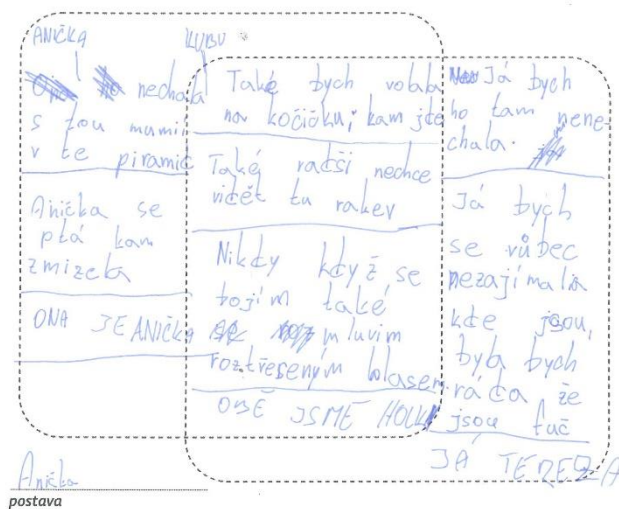 ANIČKA KUBU
nechala
s tou mumií
v té piramid
Anička se
ptá kam
zmizela
ONA JE ANIČKA
Také bych volala
na kočičku, kam jde
Také radši nechce
vidět tu rakev
Nikdy když se
bojím také
mluvím
roztřeseným hlasem
OBĚ JSME HOLKY
Já bych
ho tam nene-
chala.
Já bych
se vůbec
nezajímala
kde jsou,
byla bych
ráda že
jsou fuč
JÁ TEREZA
Anička
postava